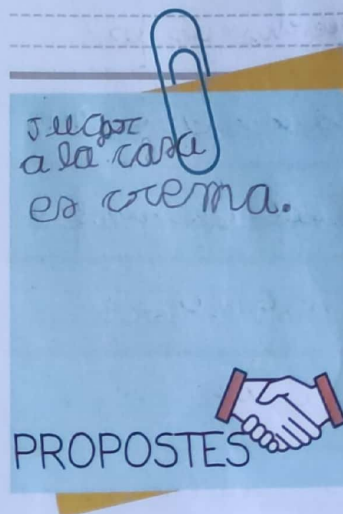 Jugar
a la casa
es crema.
PROPOSTES